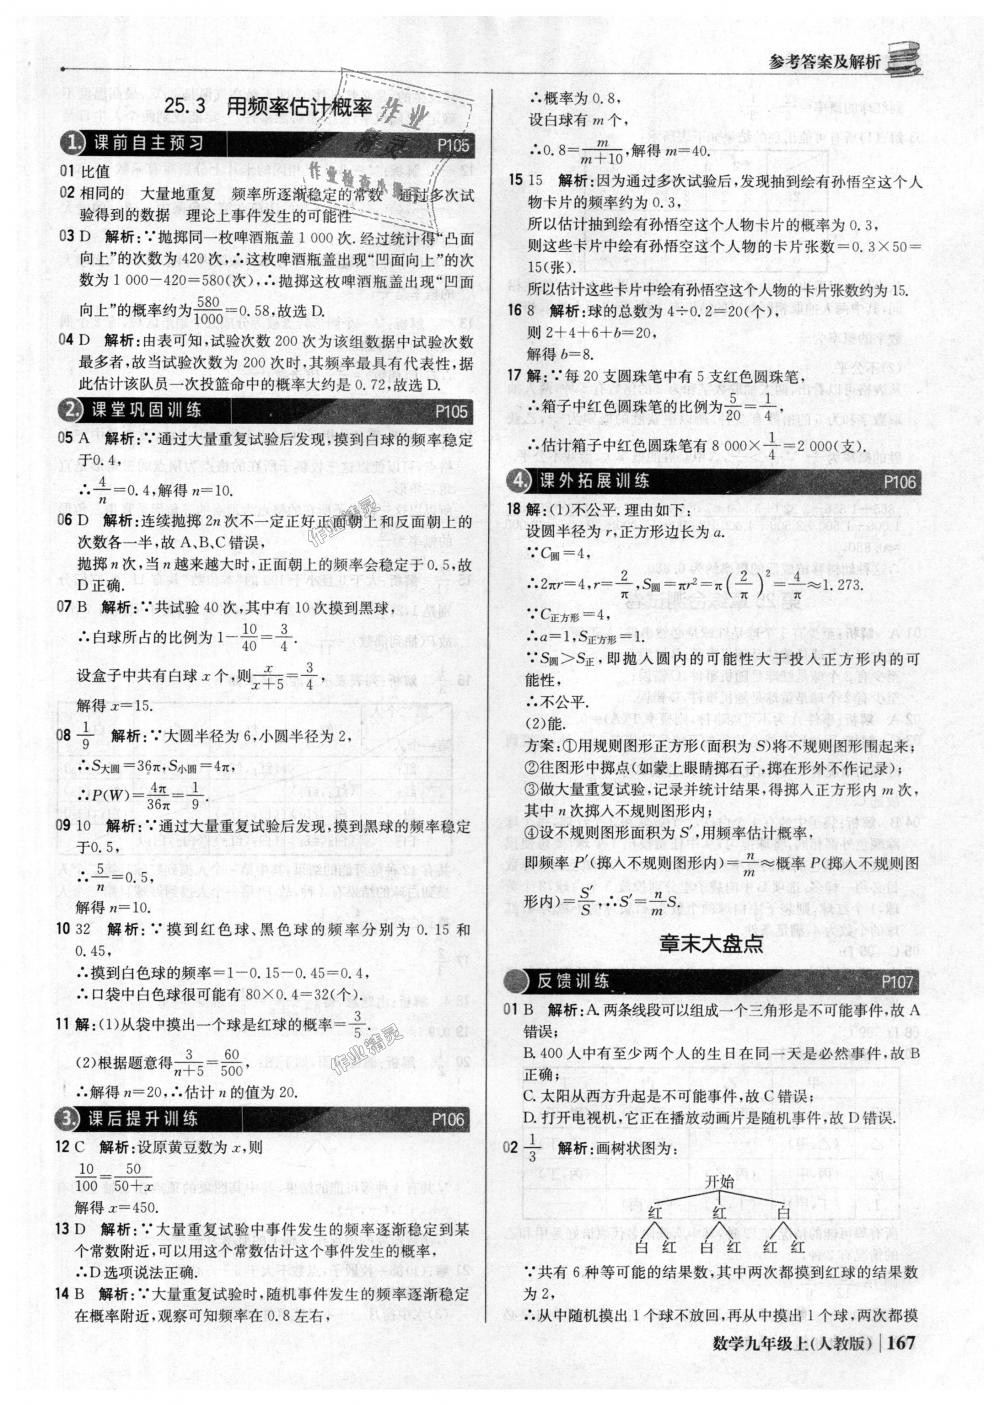 参考答案及解析
25.3 用频率估计概率
1. 课前自主预习 P105
01 比值
02 相同的 大量地重复 频率所逐渐稳定的常数 通过多次试
验得到的数据 理论上事件发生的可能性
03 D 解析:∵抛掷同一枚啤酒瓶盖1 000次.经过统计得“凸面
向上”的次数为420次,∴这枚啤酒瓶盖出现“凹面向上”的次
数为1 000-420=580(次),∴抛掷这枚啤酒瓶盖出现“凹面
向上”的概率约为580/1000=0.58,故选D.
04 D 解析:由表可知,试验次数200次为该组数据中试验次数
最多者,故当试验次数为200次时,其频率最具有代表性,据
此估计该队员一次投篮命中的概率大约是0.72,故选D.
2. 课堂巩固训练 P105
05 A 解析:∵通过大量重复试验后发现,摸到白球的频率稳定
于0.4,
∴4/n=0.4,解得n=10.
06 D 解析:连续抛掷2n次不一定正好正面朝上和反面朝上的
次数各一半,故A、B、C错误,
抛掷n次,当n越来越大时,正面朝上的频率会稳定于0.5,故
D正确.
07 B 解析:∵共试验40次,其中有10次摸到黑球,
∴白球所占的比例为1-10/40=3/4.
设盒子中共有白球x个,则x/(x+5)=3/4,
解得x=15.
08 1/9 解析:∵大圆半径为6,小圆半径为2,
∴S大圆=36π,S小圆=4π,
∴P(W)=4π/36π=1/9.
09 10 解析:∵通过大量重复试验后发现,摸到黑球的频率稳定
于0.5,
∴5/n=0.5,
解得n=10.
10 32 解析:∵摸到红色球、黑色球的频率分别为0.15和
0.45,
∴摸到白色球的频率=1-0.15-0.45=0.4,
∴口袋中白色球很可能有80×0.4=32(个).
11 解:(1)从袋中摸出一个球是红球的概率=3/5.
(2)根据题意得3/(n+5)=60/500,
∴解得n=20,∴估计n的值为20.
3. 课后提升训练 P106
12 C 解析:设原黄豆数为x,则
10/100=50/(50+x)
解得x=450.
13 D 解析:∵大量重复试验中事件发生的频率逐渐稳定到某
个常数附近,可以用这个常数估计这个事件发生的概率,
∴D选项说法正确.
14 B 解析:∵大量重复试验时,随机事件发生的频率逐渐稳定
在概率附近,观察可知频率在0.8左右,
∴概率为0.8,
设白球有m个,
∴0.8=m/(m+10),解得m=40.
15 15 解析:因为通过多次试验后,发现抽到绘有孙悟空这个人
物卡片的频率约为0.3,
所以估计抽到绘有孙悟空这个人物卡片的概率为0.3,
则这些卡片中绘有孙悟空这个人物的卡片张数=0.3×50=
15(张).
所以估计这些卡片中绘有孙悟空这个人物的卡片张数约为15.
16 8 解析:球的总数为4÷0.2=20(个),
则2+4+6+b=20,
解得b=8.
17 解:∵每20支圆珠笔中有5支红色圆珠笔,
∴箱子中红色圆珠笔的比例为5/20=1/4,
∴估计箱子中红色圆珠笔有8 000×1/4=2 000(支).
4. 课外拓展训练 P106
18 解:(1)不公平.理由如下:
设圆半径为r,正方形边长为a.
∵C圆=4,
∴2πr=4,r=2/π,S圆=πr²=π(2/π)²=4/π≈1.273.
∵C正方形=4,
∴a=1,S正方形=1.
∵S圆>S正,即抛入圆内的可能性大于投入正方形内的可
能性,
∴不公平.
(2)能.
方案:①用规则图形正方形(面积为S)将不规则图形围起来;
②往图形中掷点(如蒙上眼睛掷石子,掷在形外不作记录);
③做大量重复试验,记录并统计结果,得掷入正方形内m次,
其中n次掷入不规则图形内;
④设不规则图形面积为S′,用频率估计概率,
即频率P′(掷入不规则图形内)=n/m≈概率P(掷入不规则图
形内)=S′/S,∴S′=n/m S.
章末大盘点
反馈训练 P107
01 B 解析:A.两条线段可以组成一个三角形是不可能事件,故A
错误;
B.400人中有至少两个人的生日在同一天是必然事件,故B
正确;
C.太阳从西方升起是不可能事件,故C错误;
D.打开电视机,它正在播放动画片是随机事件,故D错误.
02 1/3 解析:画树状图为:
开始
红 红 白
白 红 白 红 红 红
∵共有6种等可能的结果数,其中两次都摸到红球的结果数
为2,
∴从中随机摸出1个球不放回,再从中摸出1个球,两次都摸
数学九年级上(人教版) 167
作业精灵
作业精灵